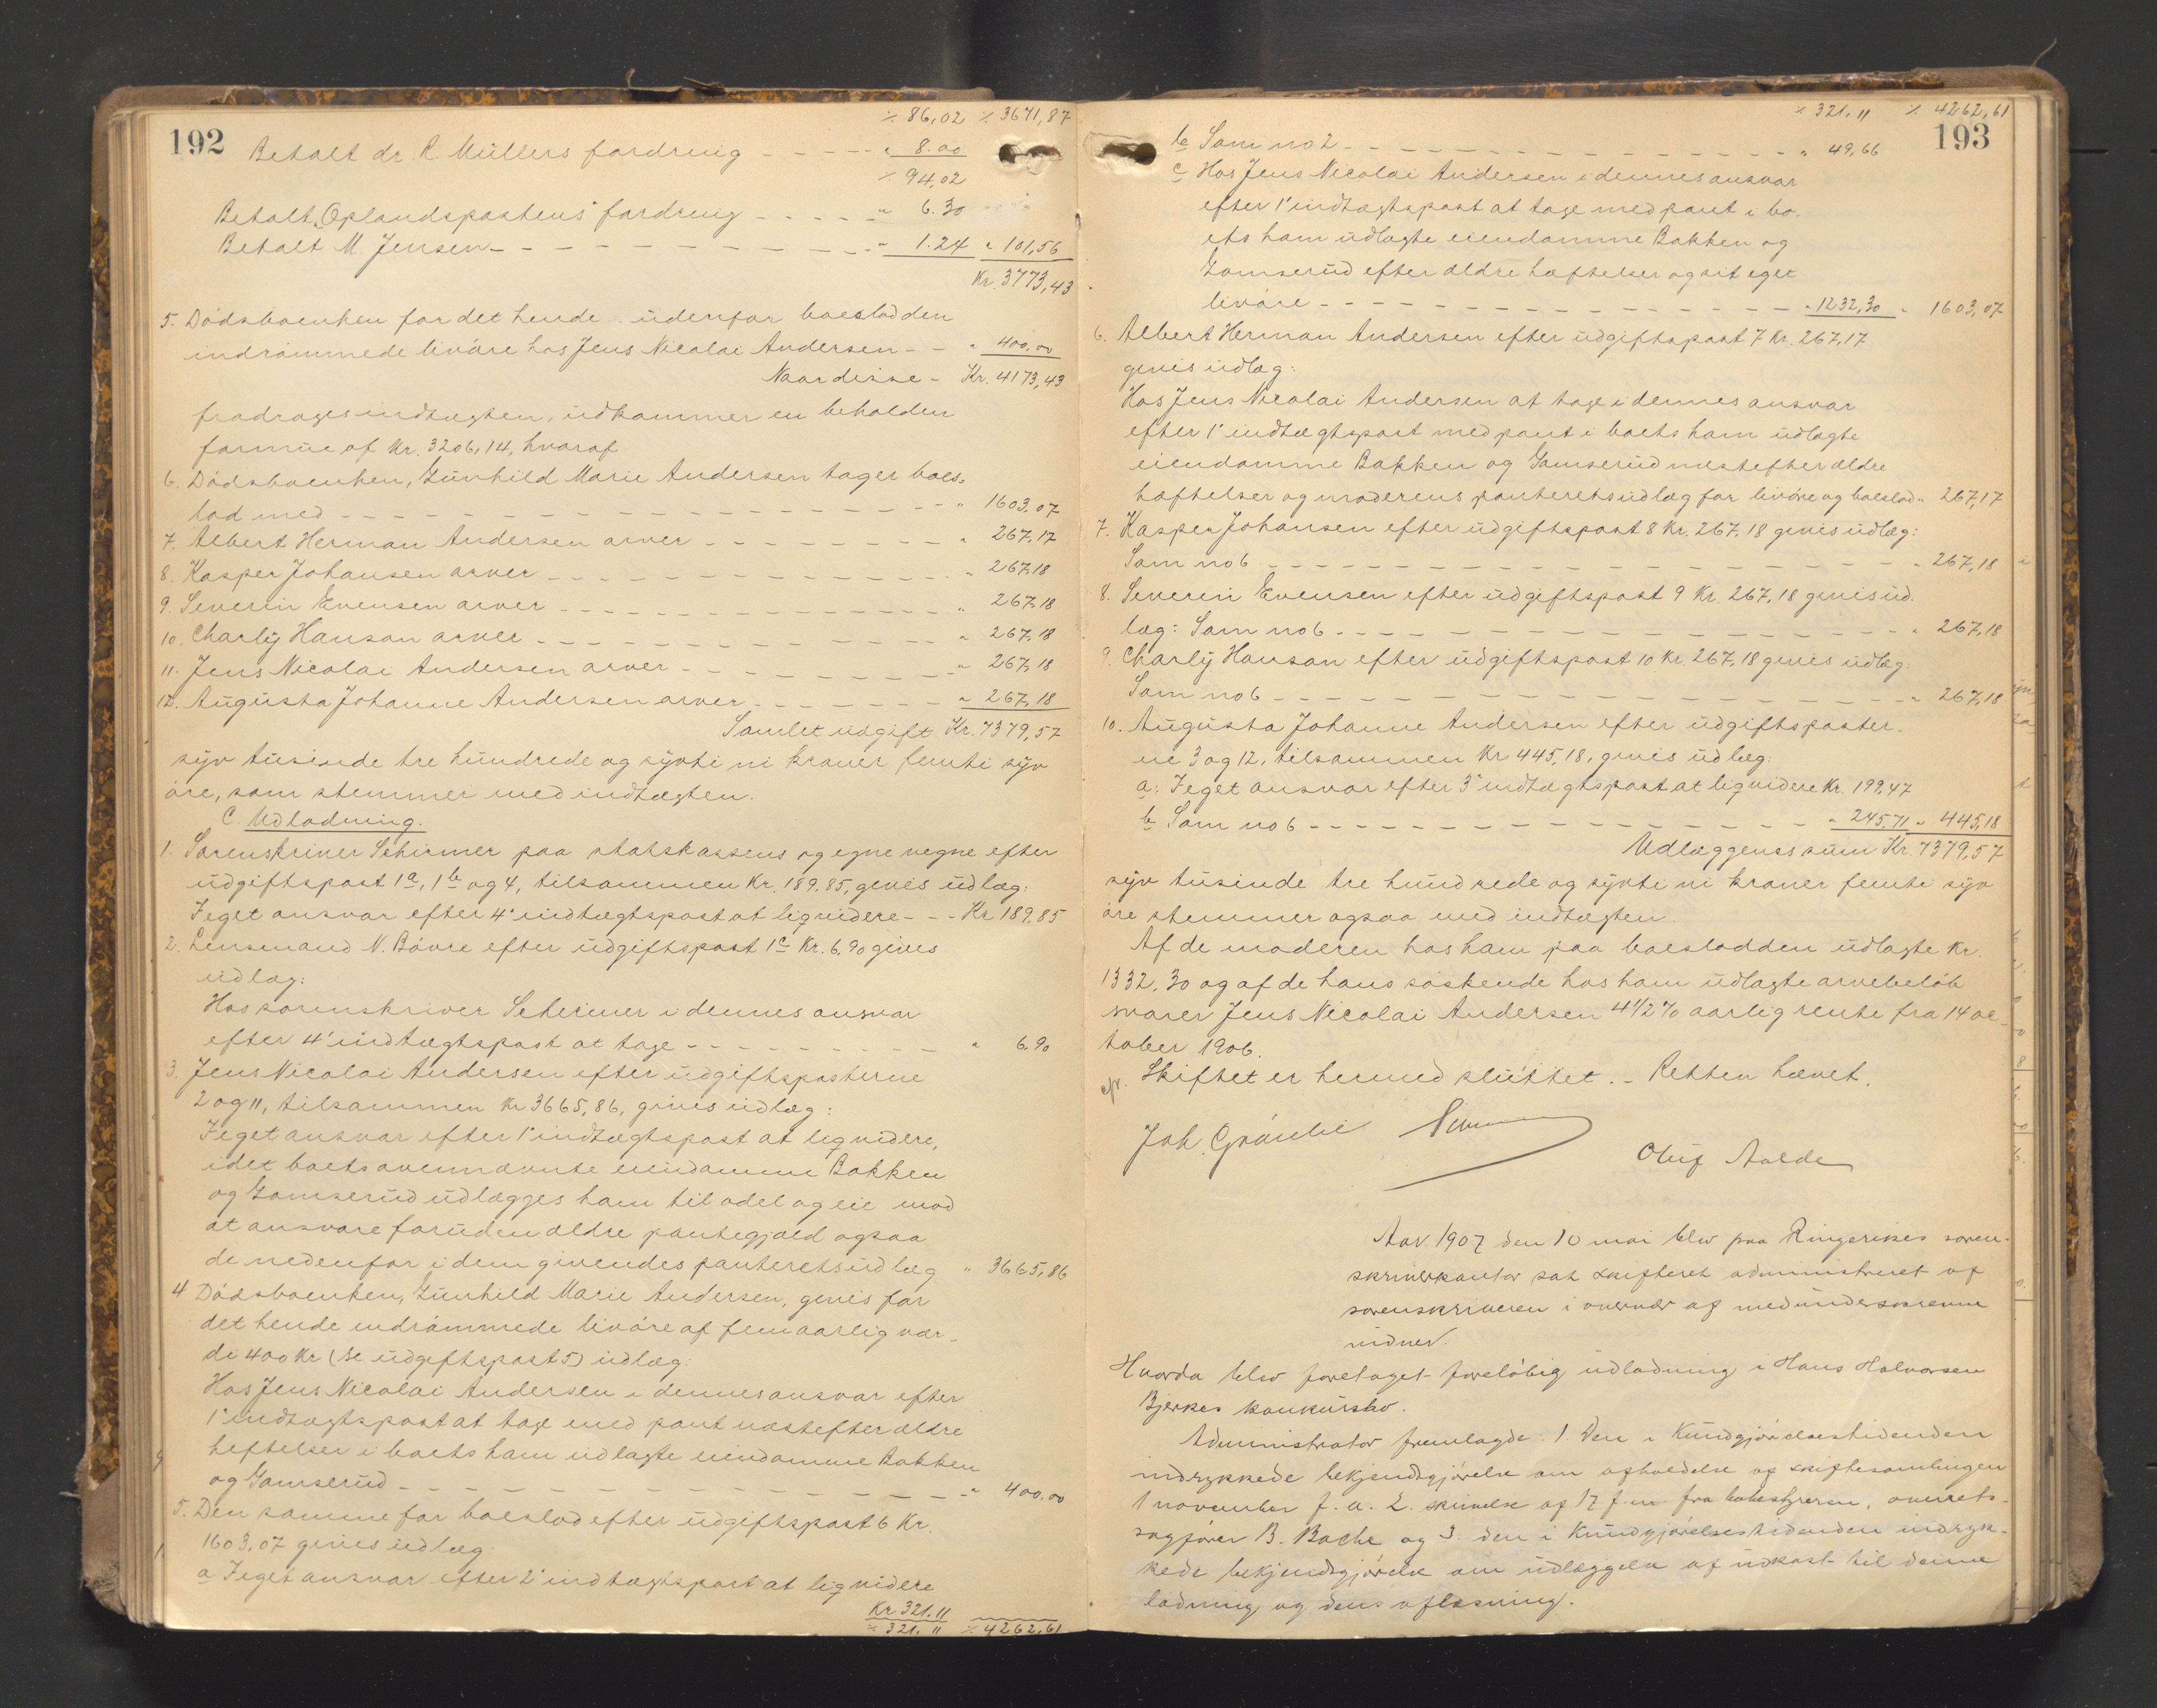 192
% 86,02 % 3671,87
Betalt dr. R. Müllers fordring - - - - " 8.00
% 94,02
Betalt „Oplandspostens" fordring - - - - - " 6.30
Betalt M Jensen - - - - - - - - - - - - " 1.24 " 101,56
Kr. 3773,43
5. Dødsboenken for det hende udenfor boeslodden
indrømmede livøre hos Jens Nicolai Andersen - - " 400.00
Naar disse - Kr. 4173,43
fradrages indtægten, udkommer en beholden
formue af Kr. 3206,14, hvoraf
6. Dødsboenken, Gunhild Marie Andersen tager boes-
lod med - - - - - - - - - - - - - - - - - " 1603.07
7. Albert Herman Andersen arver - - - - - - - - " 267,17
8. Kasper Johansen arver - - - - - - - - - - - - - " 267,18
9. Severin Evensen arver - - - - - - - - - - - - - " 267,18
10. Charly Hanson arver - - - - - - - - - - - - - " 267,18
11. Jens Nicolai Andersen arver - - - - - - - - - " 267,18
12. Augusta Johanne Andersen arver - - - - - - - " 267,18
Samlet udgift Kr. 7379,57
syv tusinde tre hundrede og sytti ni kroner femti syv
øre, som stemmer med indtægten.
C. Udlodning.
1. Sorenskriver Schirmer paa statskassens og egne vegne efter
udgiftspost 1a, 1b og 4, tilsammen Kr. 189.85, gives udlæg:
I eget ansvar efter 4' indtægtspost at liqvidere - - - Kr 189.85
2. Lensmand N. Bøvre efter udgiftspost 1c Kr. 6,90 gives
udlæg:
Hos sorenskriver Schirmer i dennes ansvar
efter 4' indtægtspost at tage - - - - - - - - - - " 6.90
3. Jens Nicolai Andersen efter udgiftsposterne
2 og 11, tilsammen Kr 3665,86, gives udlæg:
I eget ansvar efter 1' indtægtspost at liqvidere,
idet boets ovennævnte eiendomme Bakken
og Gomserud udlægges ham til odel og eie mod
at ansvare foruden ældre pantegjæld ogsaa
de nedenfor i dem givendes panteretsudlæg " 3665,86
4 Dødsboenken, Gunhild Marie Andersen, gives for
det hende indrømmede livøre af femaarlig vær-
di 400 Kr (se udgiftspost 5) udlæg:
Hos Jens Nicolai Andersen i dennes ansvar efter
1' indtægtspost at tage med pant næstefter ældre
heftelser i boets ham udlagte eiendomme Bakken
og Gomserud - - - - - - - - - - - - - - - - " 400.00
5. Den samme for boeslod efter udgiftspost 6 Kr.
1603,07 gives udlæg:
a I eget ansvar efter 2' indtægtspost at liqvidere
Kr 321.11
% 321.11 % 4262,61
193
% 321,11 % 4262,61
b Som no 2 - - - - - - - - - - - - - - - - " 49,66
c Hos Jens Nicolai Andersen i dennes ansvar
efter 1' indtægtspost at tage med pant i bo-
ets ham udlagte eiendomme Bakken og
Gomserud efter ældre hæftelser og sit eget
livøre - - - - - - - - - - - - - - - - - " 1232,30 " 1603,07
6. Albert Herman Andersen efter udgiftspost 7 Kr. 267,17
gives udlæg:
Hos Jens Nicolai Andersen at tage i dennes ansvar
efter 1' indtægtspost med pant i boets ham udlagte
eiendomme Bakken og Gomserud næstefter ældre
hæftelser og moderens panteretsudlæg for livøre og boeslod " 267,17
7. Kasper Johansen efter udgiftspost 8 Kr. 267,18 gives udlæg:
Som no 6 - - - - - - - - - - - - - - - - - " 267,18
8. Severin Evensen efter udgiftspost 9 Kr. 267,18 gives ud-
læg: Som no 6 - - - - - - - - - - - - - - - " 267,18
9. Charly Hanson efter udgiftspost 10 Kr. 267,18 gives udlæg:
Som no 6 - - - - - - - - - - - - - - - - - " 267,18
10. Augusta Johanne Andersen efter udgiftsposter-
ne 3 og 12, tilsammen Kr 445,18, gives udlæg:
a: I eget ansvar efter 3' indtægtspost at liqvidere Kr. 199,47
b Som no 6 - - - - - - - - - - - - - - - " 245.71 " 445,18
Udlæggenes sum Kr. 7379,57
syv tusinde tre hundrede og sytti ni kroner femti syv
øre stemmer ogsaa med indtægten.
Af de moderen hos ham paa boeslodden udlagte Kr.
1332,30 og af de hans søskende hos ham udlagte arvebeløb
svarer Jens Nicolai Andersen 4 1/2 % aarlig rente fra 14 oc-
tober 1906.
Skiftet er hermed sluttet. - Retten hævet.
Joh. Grønlie
Oluf Aalde
Aar 1907 den 10 mai blev paa Ringerikes soren-
skriverkontor sat skifteret administreret af
sorenskriveren i overvær af medunderskrevne
vidner.
Hvorda blev foretaget foreløbig udlodning i Hans Halvorsen
Bjerkes konkursbo.
Administrator fremlagde: 1. Den i Kundgjørelsestidenden
indrykkede bekjendtgjørelse om afholdelse af skiftesamlingen
1 november f. a. 2. skrivelse af 17 f. m. fra bobestyreren, overrets-
sagfører B. Bache og 3. den i Kundgjørelsestidenden indryk-
kede bekjendtgjørelse om udlæggelse af udkast til denne
lodning og dens aflæsning.